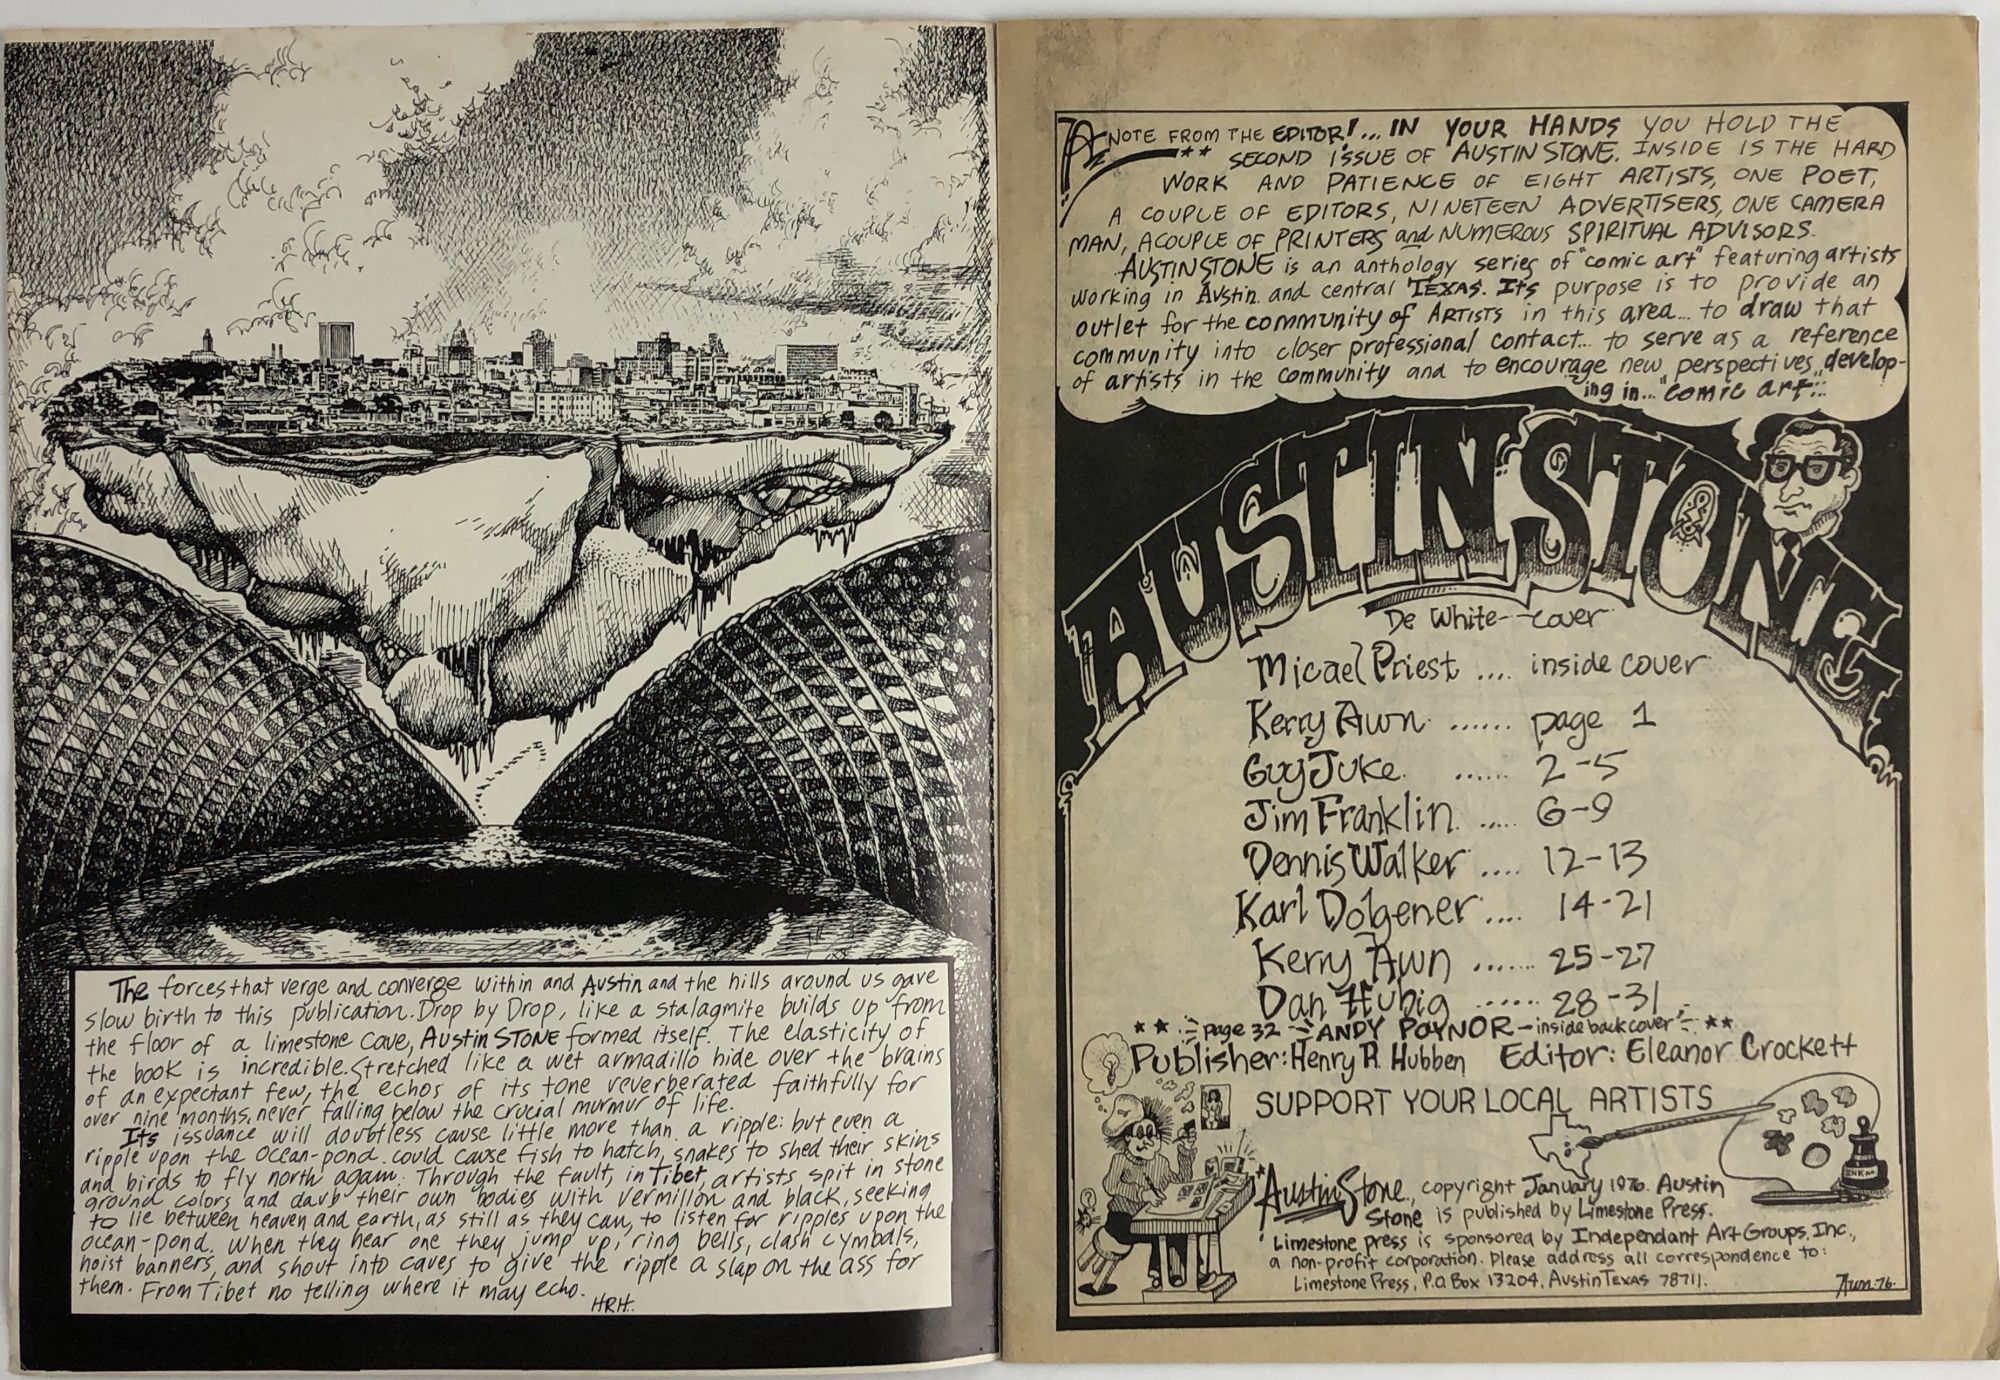 The forces that verge and converge within and Austin and the hills around us gave
slow birth to this publication. Drop by Drop, like a stalagmite builds up from
the floor of a limestone cave, Austin STONE formed itself. The elasticity of
the book is incredible. Stretched like a wet armadillo hide over the brains
of an expectant few, the echos of its tone reverberated faithfully for
over nine months, never falling below the crucial murmur of life.
Its issuance will doubtless cause little more than a ripple: but even a
ripple upon the ocean-pond could cause fish to hatch, snakes to shed their skins
and birds to fly north again. Through the fault, in Tibet, artists spit in stone
ground colors and daub their own bodies with vermillon and black, seeking
to lie between heaven and earth, as still as they can, to listen for ripples upon the
ocean-pond. When they hear one they jump up, ring bells, clash cymbals,
hoist banners, and shout into caves to give the ripple a slap on the ass for
them. From Tibet no telling where it may echo.
HRH.
A NOTE FROM THE EDITOR!... IN YOUR HANDS YOU HOLD THE
SECOND ISSUE OF AUSTIN STONE. INSIDE IS THE HARD
WORK AND PATIENCE OF EIGHT ARTISTS, ONE POET,
A COUPLE OF EDITORS, NINETEEN ADVERTISERS, ONE CAMERA
MAN, A COUPLE OF PRINTERS and NUMEROUS SPIRITUAL ADVISORS.
AUSTIN STONE is an anthology series of "comic art" featuring artists
working in Austin and central TEXAS. Its purpose is to provide an
outlet for the community of ARTISTS in this area... to draw that
community into closer professional contact... to serve as a reference
of artists in the community and to encourage new perspectives develop-
ing in... "comic art"...
AUSTIN STONE
De White--cover
Micael Priest .... inside cover
Kerry Awn ...... page 1
Guy Juke ...... 2-5
Jim Franklin ..... 6-9
Dennis Walker .... 12-13
Karl Dolgener .... 14-21
Kerry Awn ....... 25-27
Dan Hubig ...... 28-31
page 32 - ANDY POYNOR - inside back cover
Publisher: Henry R. Hubben Editor: Eleanor Crockett
SUPPORT YOUR LOCAL ARTISTS
INK
Austin Stone, copyright January 1976. Austin
Stone is published by Limestone Press.
Limestone press is sponsored by Independant Art Groups, Inc.,
a non-profit corporation. Please address all correspondence to:
Limestone Press, P.O. Box 13204, Austin Texas 78711.
Awn-76-